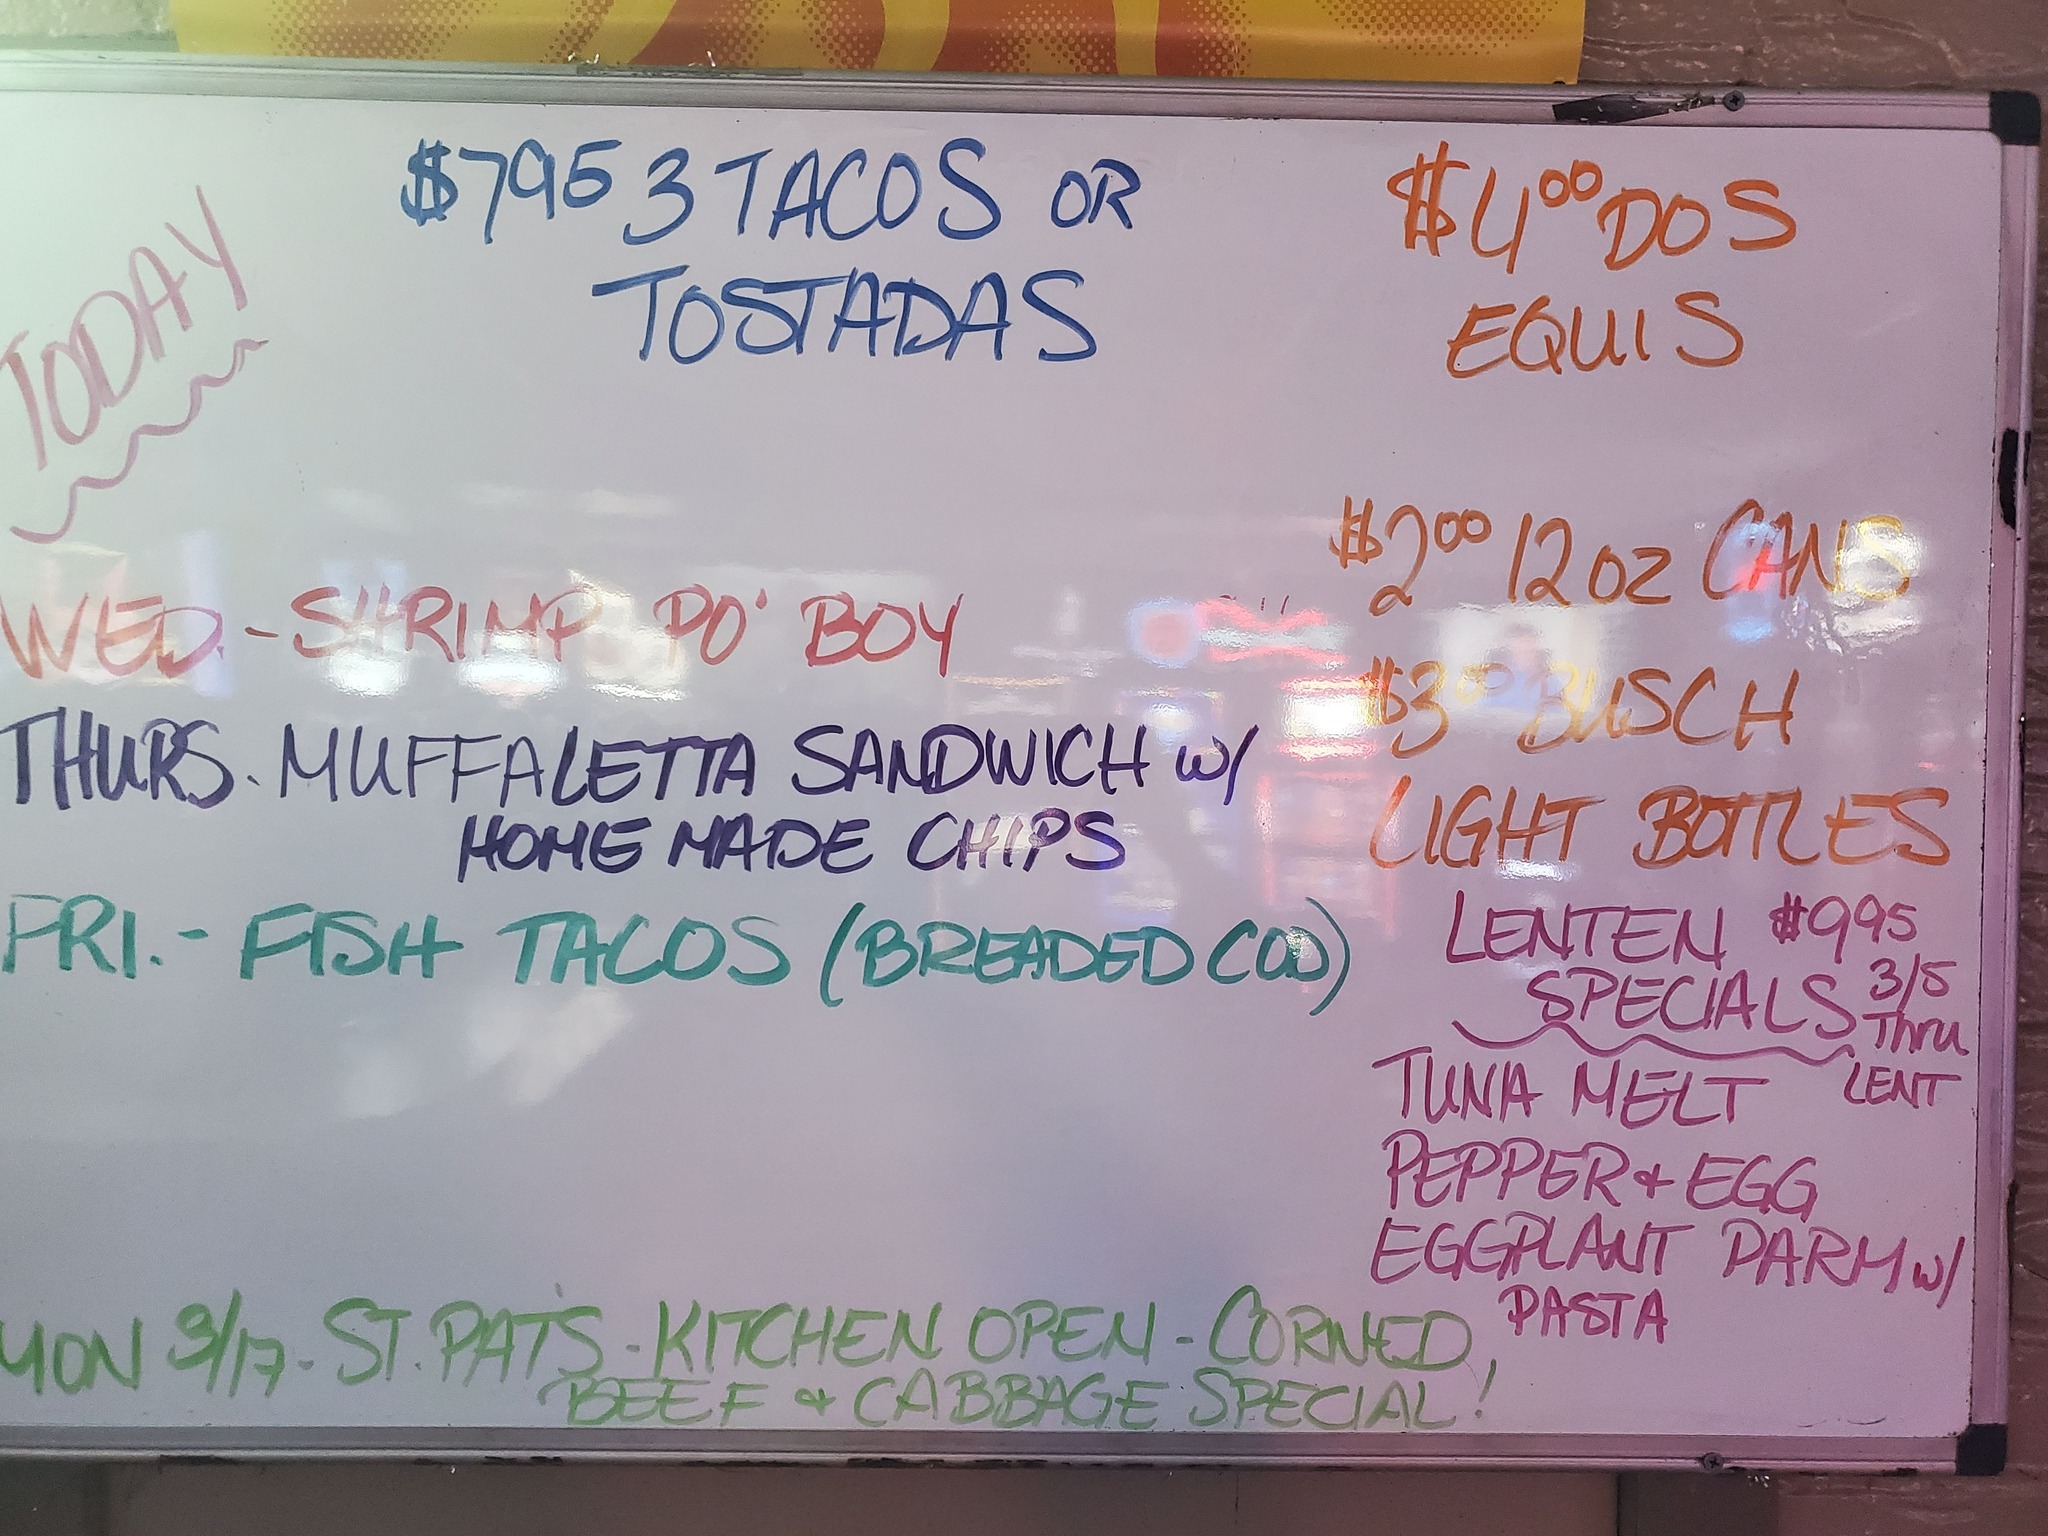 TODAY
$795 3 TACOS OR
TOSTADAS
$400 DOS
EQUIS
$200 12 OZ CANS
$300 BUSCH
LIGHT BOTTLES
WED. - SHRIMP PO' BOY
THURS. MUFFALETTA SANDWICH W/
HOMEMADE CHIPS
FRI. - FISH TACOS (BREADED COD)
LENTEN $995
SPECIALS 3/5
Thru
LENT
TUNA MELT
PEPPER & EGG
EGGPLANT PARM W/
PASTA
MON 3/17 - ST. PAT'S - KITCHEN OPEN - CORNED
BEEF & CABBAGE SPECIAL!